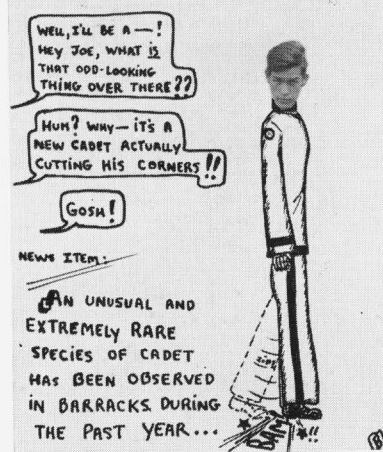 WELL, I'LL BE A —!
HEY JOE, WHAT IS
THAT ODD-LOOKING
THING OVER THERE??
HUH? WHY — IT'S A
NEW CADET ACTUALLY
CUTTING HIS CORNERS!!
GOSH!
NEWS ITEM:
AN UNUSUAL AND
EXTREMELY RARE
SPECIES OF CADET
HAS BEEN OBSERVED
IN BARRACKS DURING
THE PAST YEAR...
BAM
!!